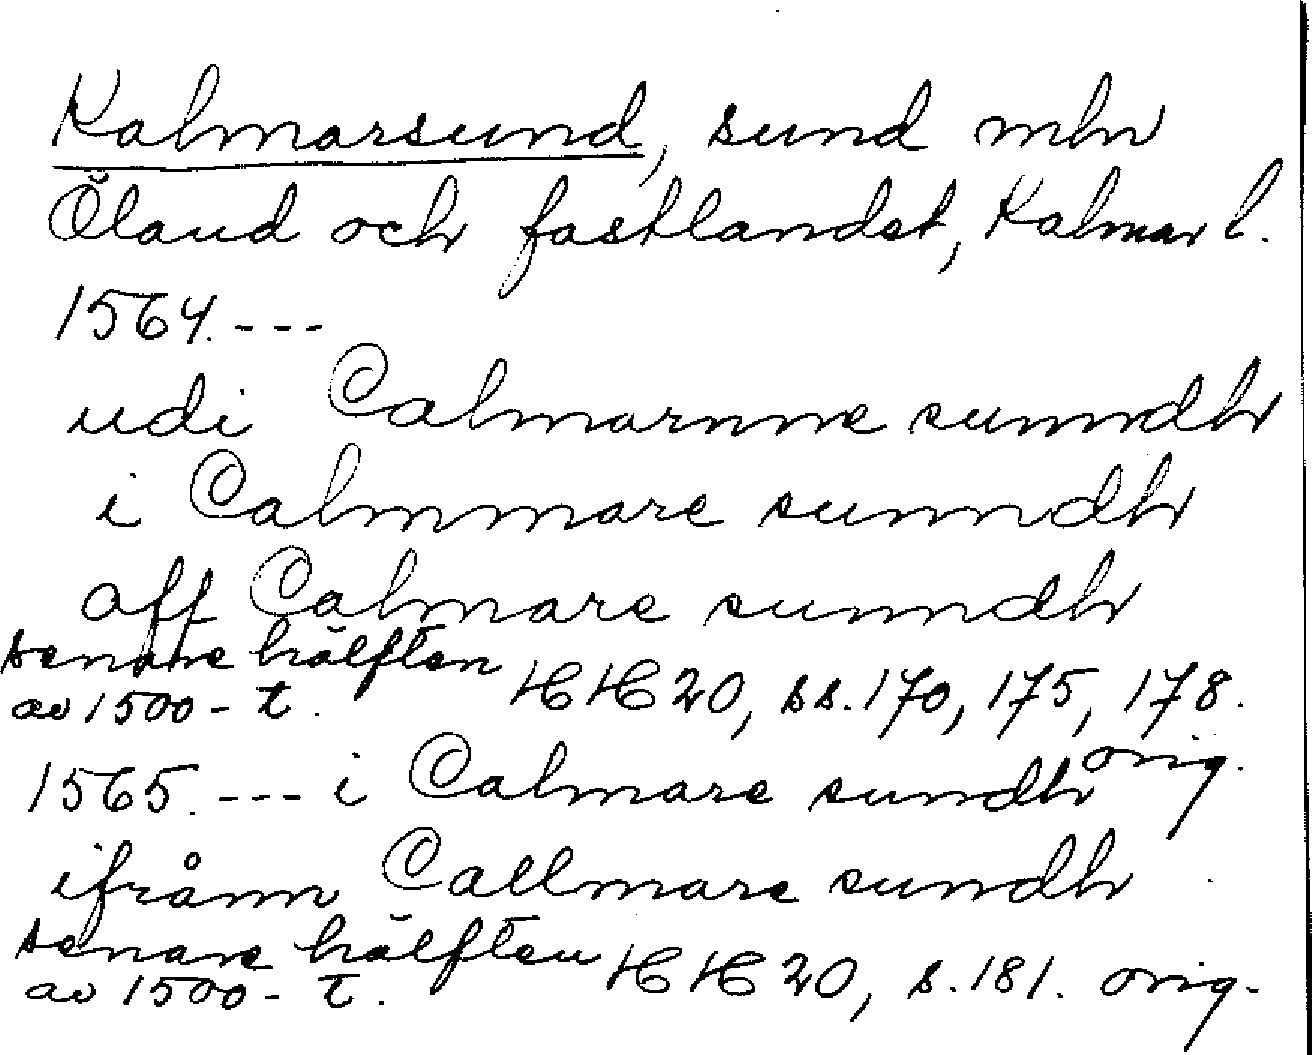 Kalmarsund, sund mln
Öland och fastlandet, Kalmar l.
1564. ---
udi Calmarnne sunndh
i Calmmare sunndh
aff Calmare sunndh
senare hälften
av 1500-t. HH 20, ss. 170, 175, 178.
orig.
1565. --- i Calmare sundh
ifrånn Callmare sundh
senare hälften
av 1500-t. HH 20, s. 181. orig.